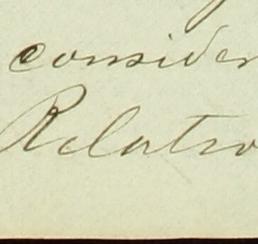 consider
Relatio